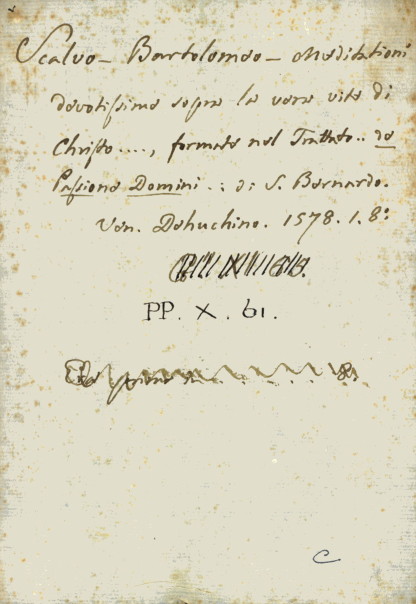 Scalvo - Bartolomeo - Meditationi
devotissime sopra la vera vite di
Christo...., formate nel Trattato.. de
Passione Domini..: di S. Bernardo.
Ven. Dehuchino. 1578. 1. 8:
PP. X. 61.
C